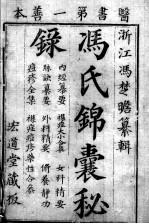 醫書第一善本
浙江馮楚瞻纂輯
馮氏錦囊秘
錄
內經纂要
雜症大小合參
女科精要
脉訣纂要
外科精要
脩養靜功
痘疹全集
雜症痘疹藥性合參
宏道堂藏板